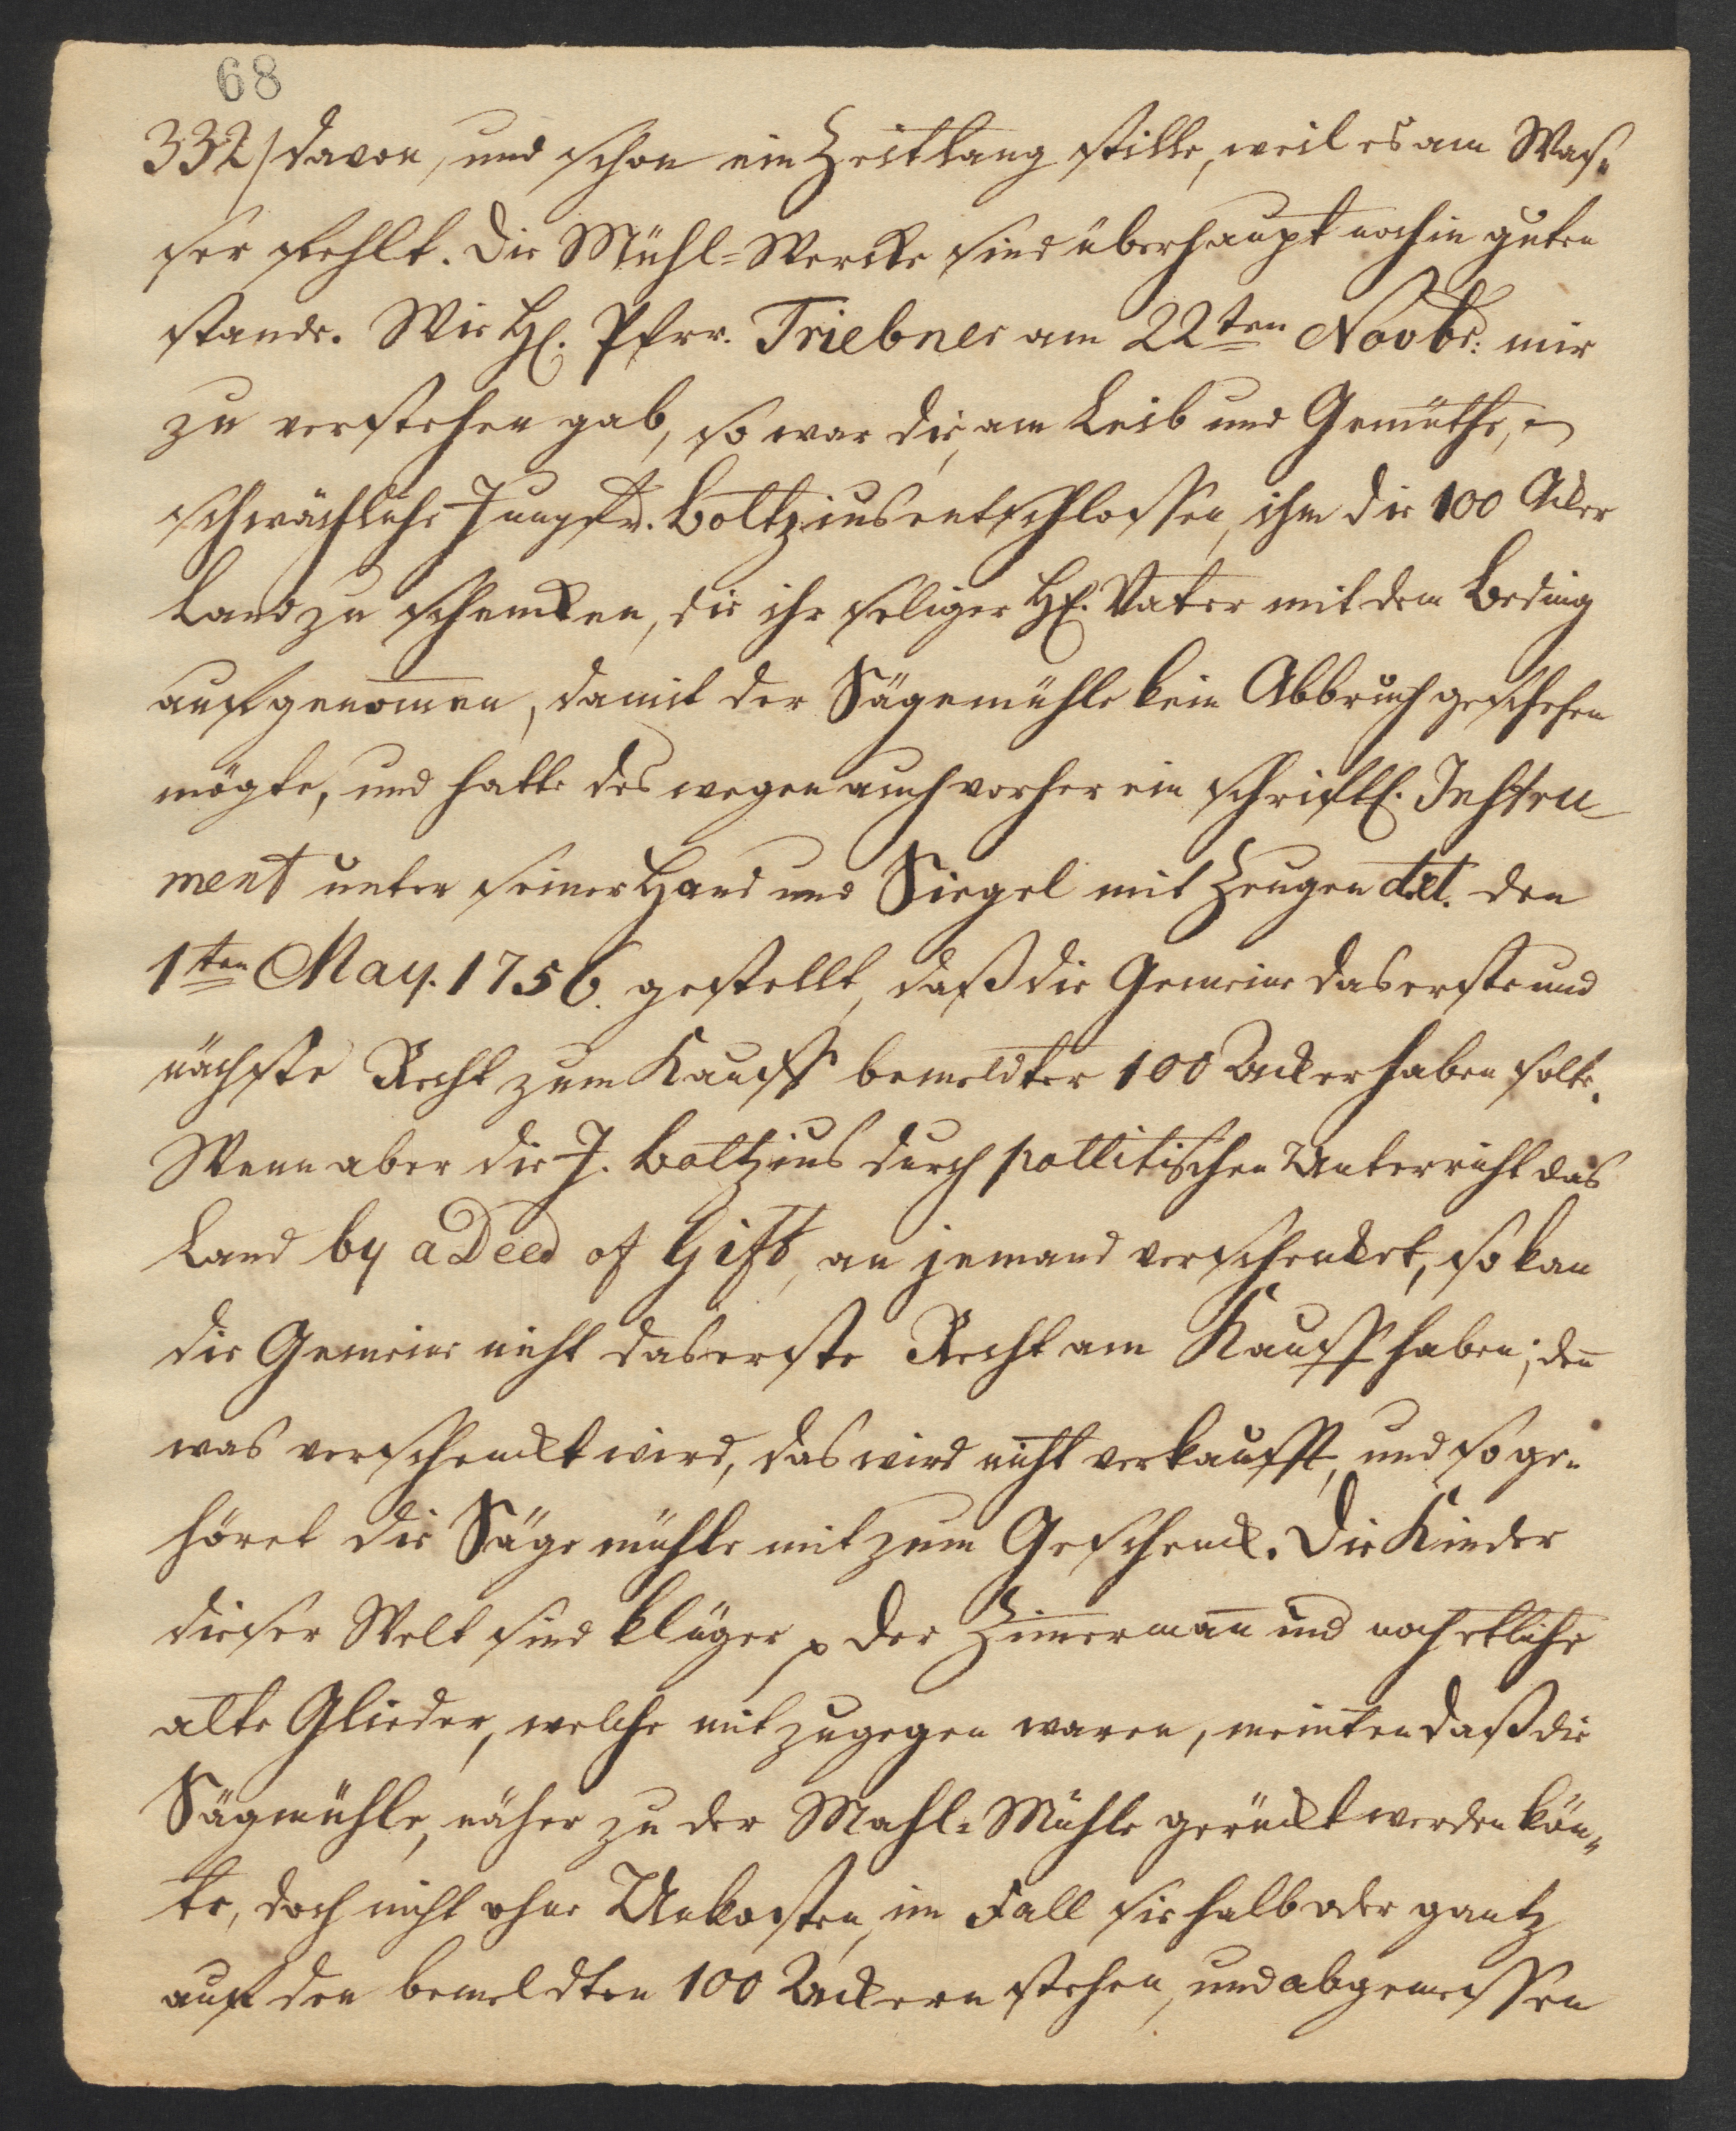 68
332/ davon, und schon ein Zeitlang stille, weil es am Was=
ser fehlt. Die Mühl=Wercke sind überhaupt noch in guten
stande. Wie H. Pfrr. Triebner am 22ten Novbr: mir
zu verstehen gab, so war die, am Leib und Gemüthe,
schwächliche Jungfr. Boltzius entschlossen, ihm die 100 Acker
Land zu schencken, die ihr seliger H. Vater mit dem Beding
aufgenom̄en, damit der Sägemühle kein Abbruch geschehen
mögte, und hatte des wegen auch vorher ein schriftl. Instru
ment unter seiner Hand und Siegel mit Zeugen dat. den
1ten May. 1756. gestellt, daß die Gemeine das erste und
nächste Recht zum Kauff bemeldter 100 Acker haben solte.
Wenn aber die J. Boltzius durch pollitischen Unterricht das
Land by a Deed of Gift, an jemand verschencket, so kan
die Gemeine nicht das erste Recht am Kauff haben; den̄
was verschenckt wird, das wird nicht verkaufft, und so ge=
höret die Säge mühle mit zum Geschenck. Die Kinder
dieser Welt sind klüger p Der Zim̄erman̄ und noch etliche
alte Glieder, welche mit zugegen waren, meinten daß die
Sägmühle, näher zu der Mahl=Mühle gerückt werden kön=
te, doch nicht ohne Unkosten, im Fall sie halb oder gantz
auf den bemeldten 100 Ackern stehen, und abgemessen